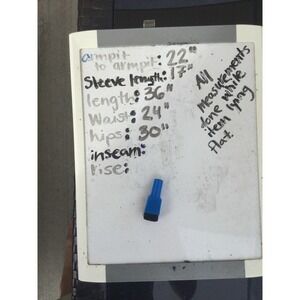 armpit
to armpit: 22"
Sleeve length: 17"
length: 36"
Waist: 24"
hips: 30"
inseam:
rise:
All
measurements
done while
item lying
flat.